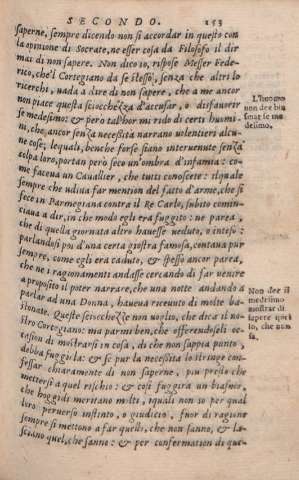 SECONDO. 153
saperne, sempre dicendo non si accordar in questo con
la opinione di Socrate, ne esser cosa da Filosofo il dir
mai di non sapere. Non dico io, rispose Messer Fede-
rico, che'l Cortegiano da se stesso, senza che altri lo
ricerchi, vada a dire di non sapere, che a me ancor
non piace questa sciocchezza d'accusar, o disfavorir
se medesimo: & però talhor mi rido di certi huomi-
ni, che ancor senza necessità narrano volentieri alcu-
ne cose; lequali, benche forse siano intervenute senza
colpa loro, portan però seco un'ombra d'infamia: co-
me faceva un Cavallier, che tutti conoscete: ilquale
sempre che udiva far mention del fatto d'arme, che si
fece in Parmegiana contra il Re Carlo, subito comin-
ciava a dir, in che modo egli era fuggito: ne parea,
che di quella giornata altro havesse veduto, o inteso:
parlandosi poi d'una certa giostra famosa, contava pur
sempre, come egli era caduto, & spesso ancor parea,
che ne i ragionamenti andasse cercando di far venire
a proposito il poter narrare, che una notte andando a
parlar ad una Donna, haveua riceuuto di molte ba-
stonate. Queste sciocchezze non voglio, che dica il no-
stro Cortegiano: ma parmi ben, che offerendoseli oc-
casion di mostrarsi in cosa, di che non sappia punto,
debba fuggirla: & se pur la necessità lo stringe con-
fessar chiaramente di non saperne, più presto che
mettersi a quel rischio: & così fuggirà un biasmo,
che hoggidì meritano molti, iquali non so per qual
loro perverso instinto, o giudicio, fuor di ragione
sempre si mettono a far quelli, che non sanno, & la-
sciano quel, che sanno: & per confermation di que-
L'huomo
non dee bia
simar se me
desimo.
Non dee il
medesimo
mostrar di
sapere quel
lo, che non
sa.